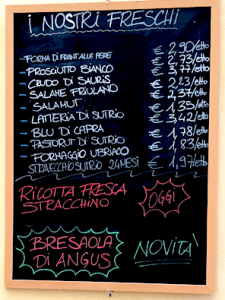 I NOSTRI FRESCHI
FORMA DI FRANT ALLE PERE € 2,90/etto
PROSCIUTTO BIANCO € 2,73/etto
CRUDO DI SAURIS € 3,77/etto
SALAME FRIULANO € 2,23/etto
SALAMUT € 2,37/etto
LATTERIA DI SUTRIO € 1,35/etto
BLU DI CAPRA € 3,42/etto
PASTORUT DI SUTRIO € 1,78/etto
FORMAGGIO UBRIACO € 1,83/etto
STRAVECCHIO SUTRIO 24 MESI € 1,97/etto
RICOTTA FRESCA
STRACCHINO
OGGI
BRESAOLA
DI ANGUS
NOVITÀ